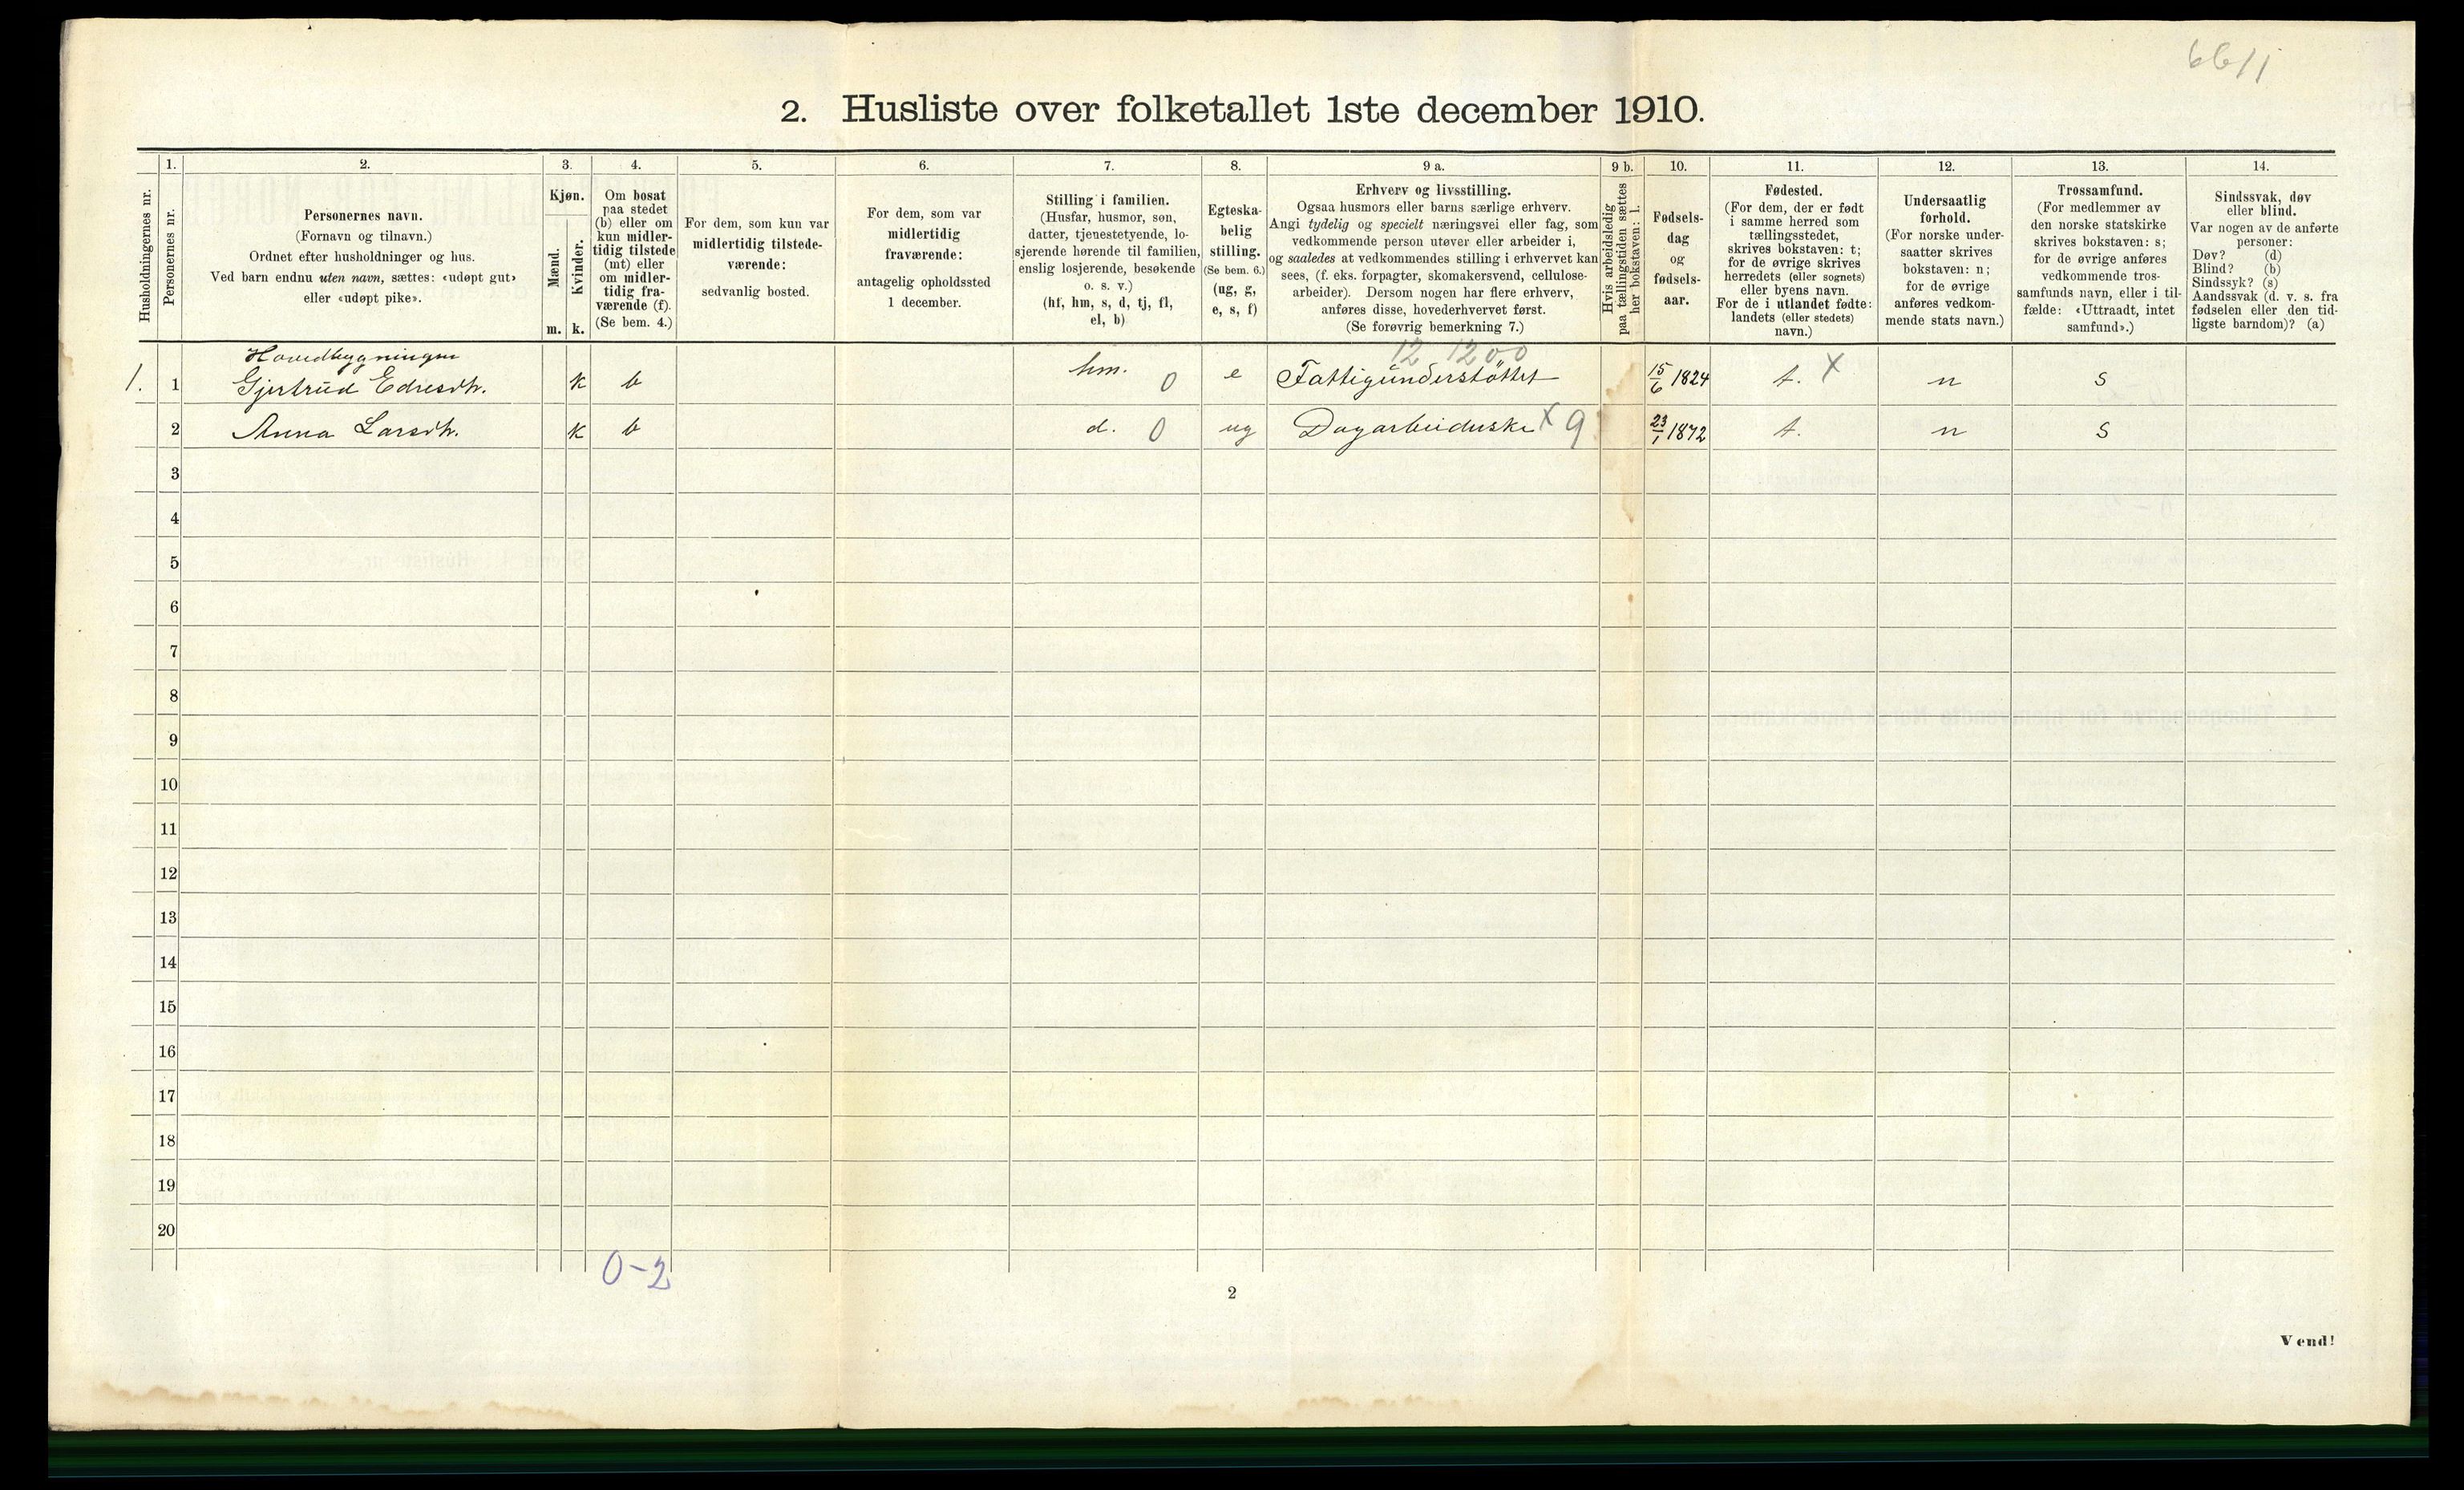 6611
2. Husliste over folketallet 1ste december 1910.
1. 2. 3. 4. 5. 6. 7. 8. 9 a. 9 b. 10. 11. 12. 13. 14.
Husholdningernes nr.
Personernes nr.
Personernes navn.
(Fornavn og tilnavn.)
Ordnet efter husholdninger og hus.
Ved barn endnu uten navn, sættes: «udøpt gut»
eller «udøpt pike».
Kjøn.
Mænd.
Kvinder.
m. k.
Om bosat
paa stedet
(b) eller om
kun midler-
tidig tilstede
(mt) eller
om midler-
tidig fra-
værende (f).
(Se bem. 4.)
For dem, som kun var
midlertidig tilstede-
værende:
sedvanlig bosted.
For dem, som var
midlertidig
fraværende:
antagelig opholdssted
1 december.
Stilling i familien.
(Husfar, husmor, søn,
datter, tjenestetyende, lo-
sjerende hørende til familien,
enslig losjerende, besøkende
o. s. v.)
(hf, hm, s, d, tj, fl,
el, b)
Egteska-
belig
stilling.
(Se bem. 6.)
(ug, g,
e, s, f)
Erhverv og livsstilling.
Ogsaa husmors eller barns særlige erhverv.
Angi tydelig og specielt næringsvei eller fag, som
vedkommende person utøver eller arbeider i,
og saaledes at vedkommendes stilling i erhvervet kan
sees, (f. eks. forpagter, skomakersvend, cellulose-
arbeider). Dersom nogen har flere erhverv,
anføres disse, hovederhvervet først.
(Se forøvrig bemerkning 7.)
Hvis arbeidsledig
paa tællingstiden sættes
her bokstaven: l.
Fødsels-
dag
og
fødsels-
aar.
Fødested.
(For dem, der er født
i samme herred som
tællingsstedet,
skrives bokstaven: t;
for de øvrige skrives
herredets (eller sognets)
eller byens navn.
For de i utlandet fødte:
landets (eller stedets)
navn.)
Undersaatlig
forhold.
(For norske under-
saatter skrives
bokstaven: n;
for de øvrige
anføres vedkom-
mende stats navn.)
Trossamfund.
(For medlemmer av
den norske statskirke
skrives bokstaven: s;
for de øvrige anføres
vedkommende tros-
samfunds navn, eller i til-
fælde: «Uttraadt, intet
samfund».)
Sindssvak, døv
eller blind.
Var nogen av de anførte
personer:
Døv? (d)
Blind? (b)
Sindssyk? (s)
Aandssvak (d. v. s. fra
fødselen eller den tid-
ligste barndom)? (a)
Hovedbygningen 12 1200
1. 1 Gjertrud Edresdtr. k b hm. 0 e Fattigunderstöttet 15/6 1824 t. X n s
2 Anna Larsdtr. k b d. 0 ug Dagarbeiderske X 9 23/1 1872 t. n s
3
4
5
6
7
8
9
10
11
12
13
14
15
16
17
18
19
20
0-2
2
Vend!